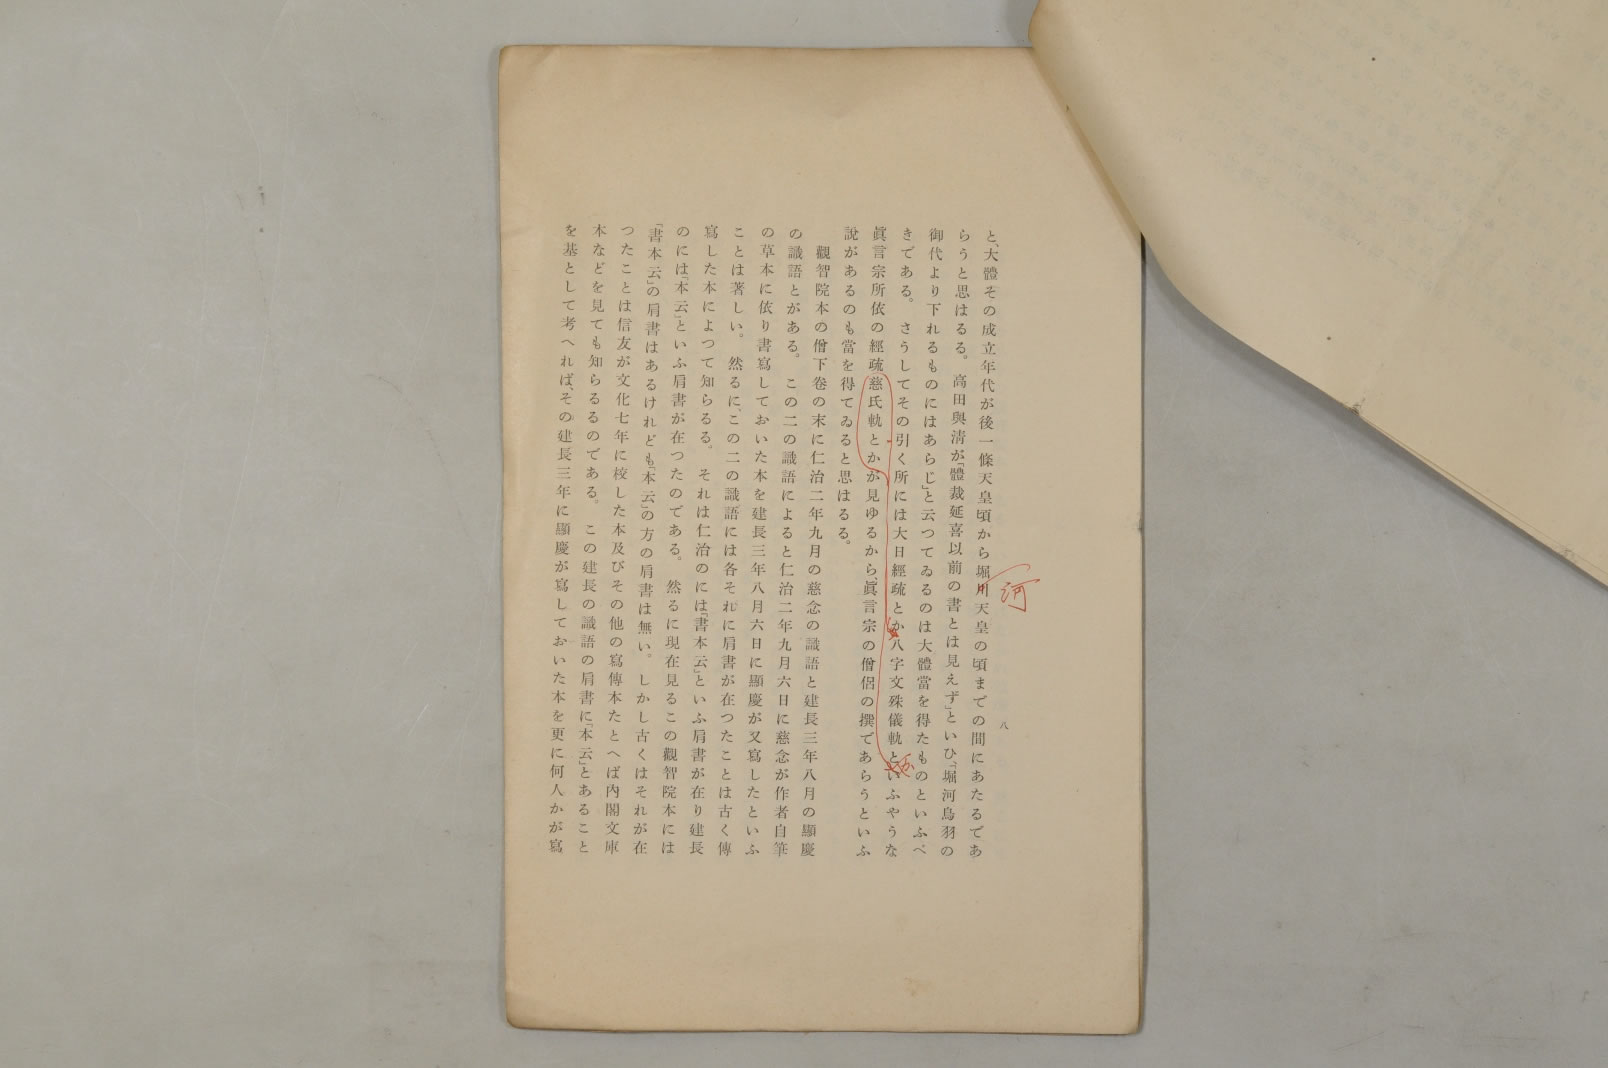 八
と、大體その成立年代が後一條天皇頃から堀川天皇の頃までの間にあたるであ
河
らうと思はるる。高田與淸が「體裁延喜以前の書とは見えず」といひ、「堀河鳥羽の
御代より下れるものにはあらじ」と云つてゐるのは大體當を得たものといふべ
きである。さうしてその引く所には大日經疏とか八字文殊儀軌といふやうな
眞言宗所依の經疏慈氏軌とかが見ゆるから、眞言宗の僧侶の撰であらうといふ
說があるのも當を得てゐると思はるる。
觀智院本の僧下卷の末に仁治二年九月の慈念の識語と建長三年八月の顯慶
の識語とがある。この二の識語によると仁治二年九月六日に慈念が作者自筆
の草本に依り書寫しておいた本を建長三年八月六日に顯慶が又寫したといふ
ことは著しい。然るに、この二の識語には各それに肩書が在つたことは古く傳
寫した本によつて知らるる。それは仁治のには「書本云」といふ肩書が在り建長
のには「本云」といふ肩書が在つたのである。然るに現在見るこの觀智院本には
「書本云」の肩書はあるけれども「本云」の方の肩書は無い。しかし古くはそれが在
つたことは信友が文化七年に校した本及びその他の寫傳本たとへば內閣文庫
本などを見ても知らるるのである。この建長の識語の肩書に「本云」とあること
を基として考へれば、その建長三年に顯慶が寫しておいた本を更に何人かが寫